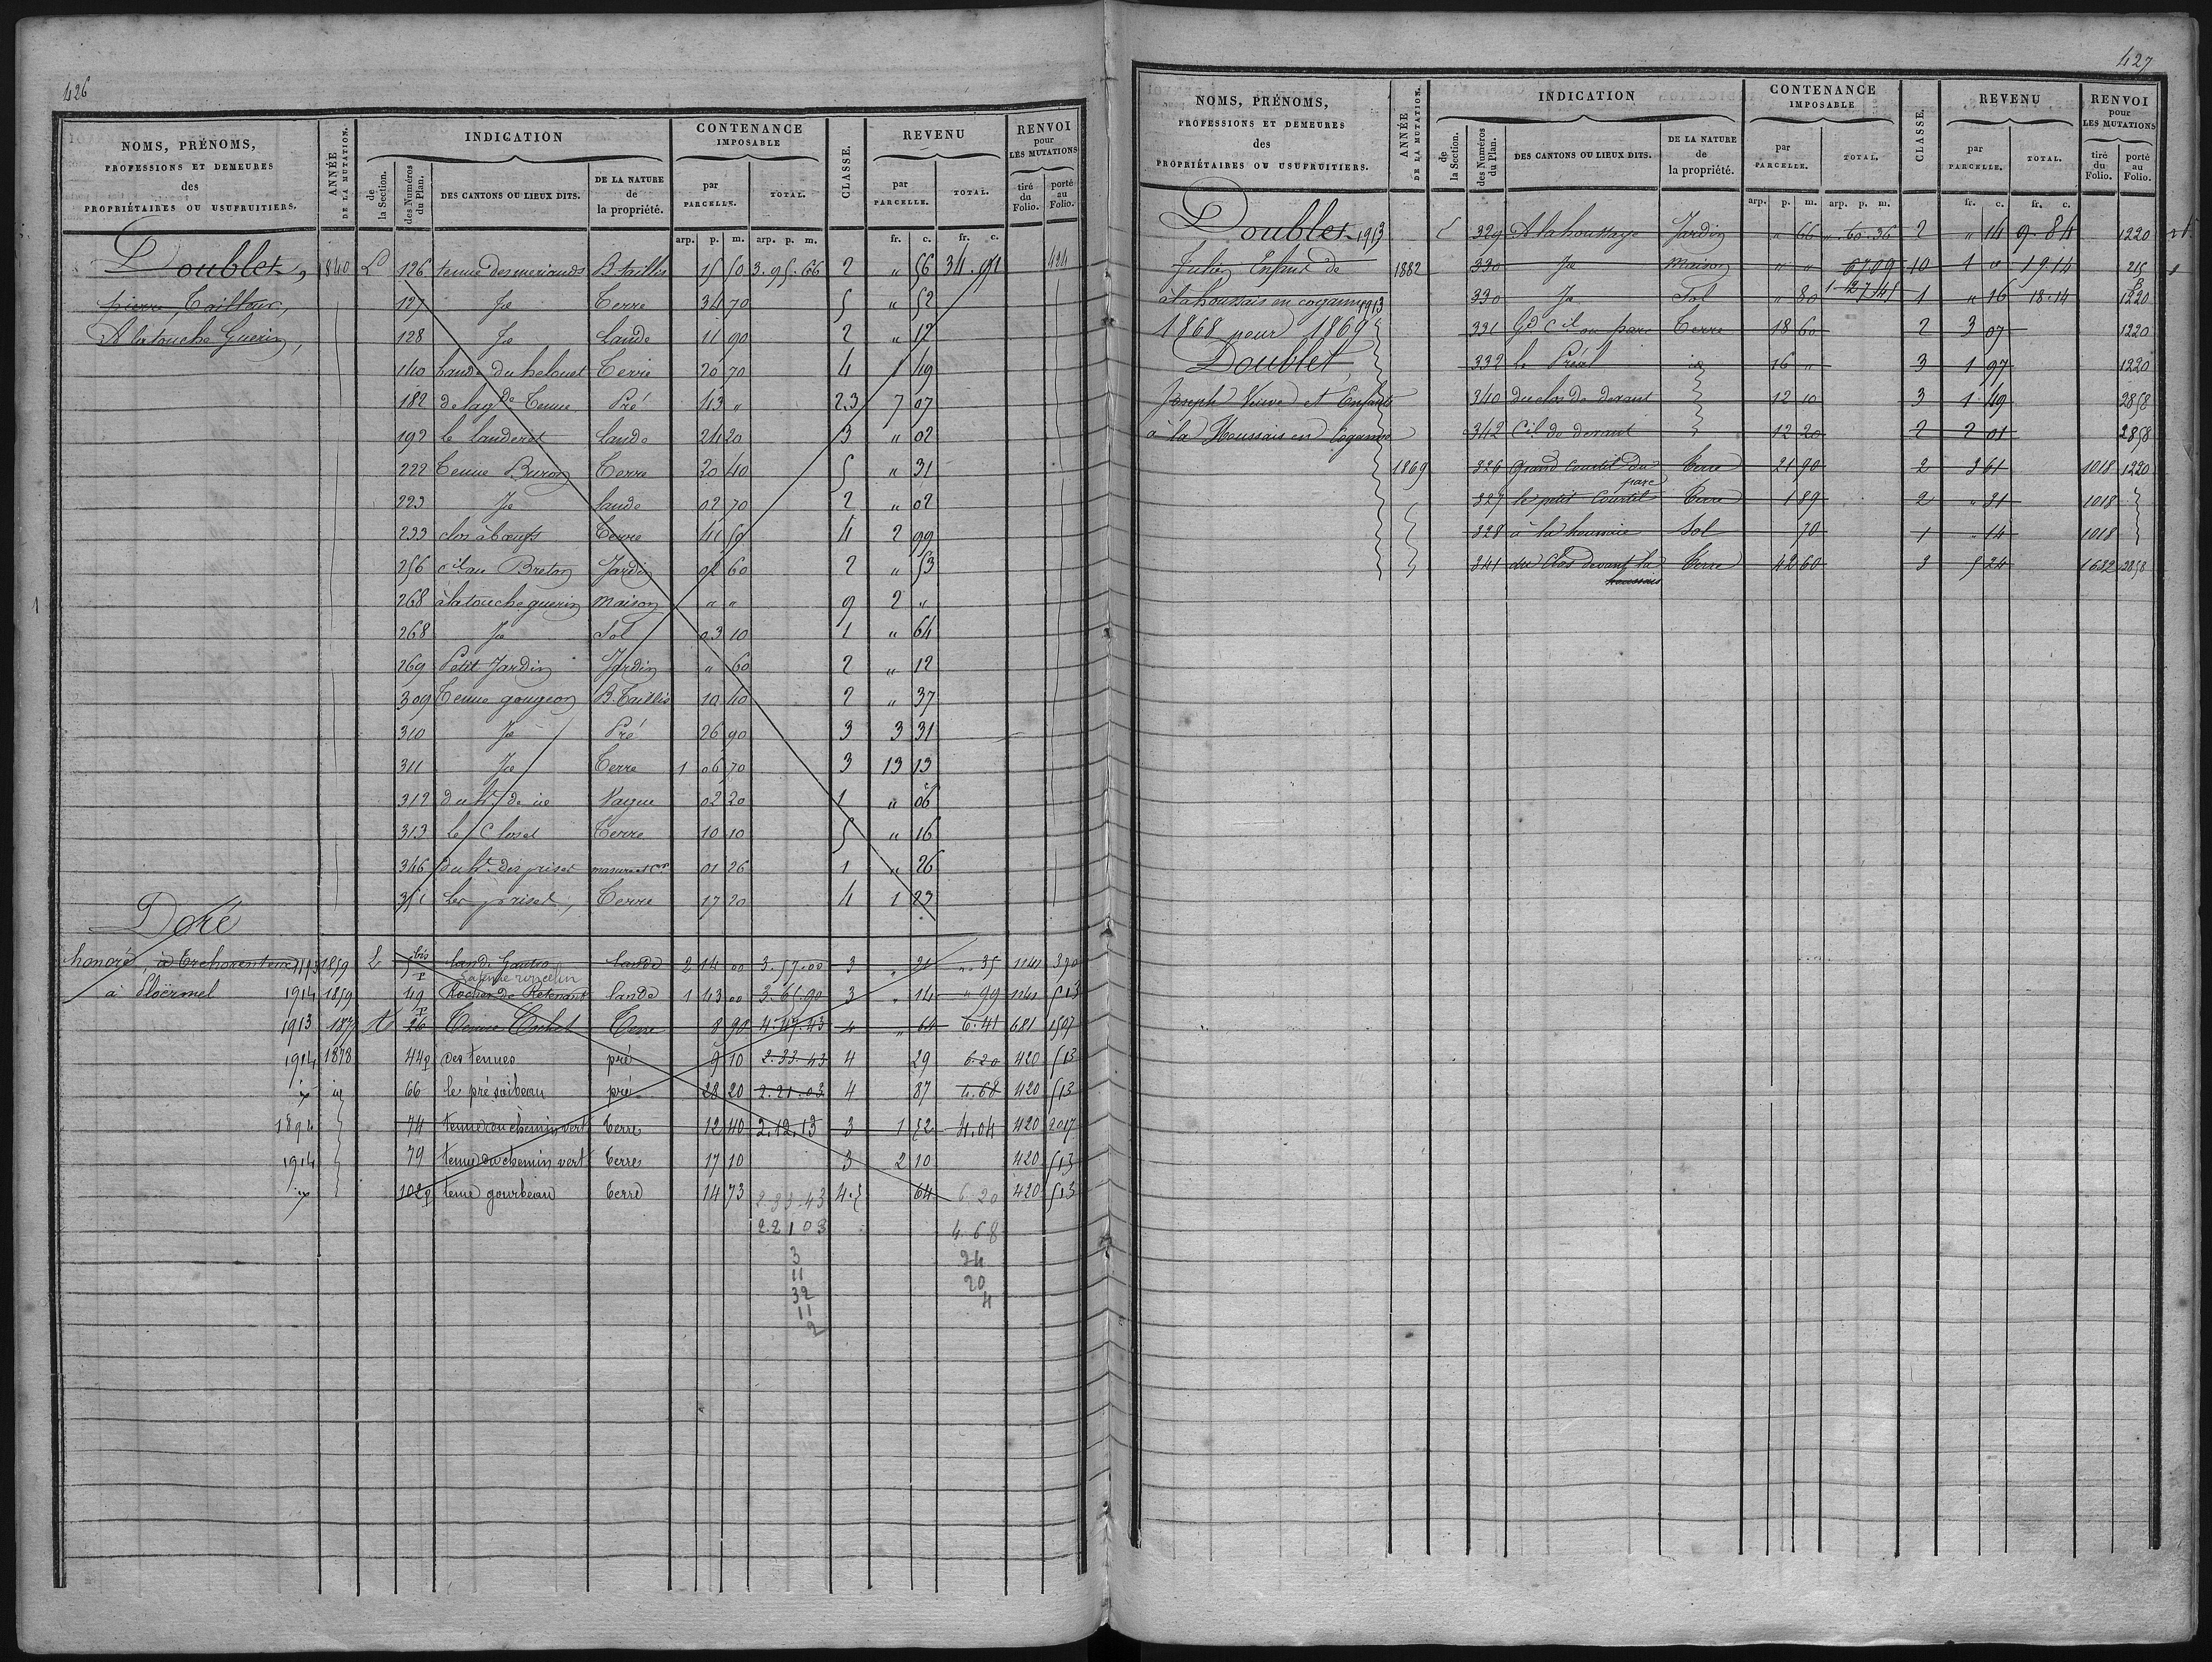 426
NOMS, PRÉNOMS, PROFESSIONS ET DEMEURES des PROPRIÉTAIRES OU USUFRUITIERS. ANNÉE DE LA MUTATION. INDICATION de la Section. des Numéros du Plan. DES CANTONS OU LIEUX DITS. DE LA NATURE de la propriété. CONTENANCE IMPOSABLE par PARCELLE. TOTAL. CLASSE. REVENU par PARCELLE. TOTAL. RENVOI pour LES MUTATIONS tiré du Folio. porté au Folio.
arp. p. m. arp. p. m. fr. c. fr. c.
Doublet, 1840 L 126 tenue des meriands B. taillis 15 50 3.95.66 2 " 56 34.91 424
pierre, Tailleur, 127 Je Terre 34 70 5 " 52
A la touche Guerin, 128 Je lande 11 90 2 " 12
140 lande du helouet Terre 20 70 4 1 49
182 de la gde Tenue Pré 43 " 2.3 7 07
192 le landeret lande 24 20 3 " 02
222 Tenue Buron Terre 20 40 5 " 31
223 Je lande 02 70 2 " 02
233 clos à boeufs Terre 41 50 4 2 99
256 cil au Breton Jardin 02 60 2 " 53
268 à la touche guerin maison " " 9 2 "
268 Je Sol 03 10 1 " 64
269 Petit Jardin Jardin " 60 2 " 12
309 Tenue gougeon B. Taillis 10 40 2 " 37
310 Je Pré 26 90 3 3 31
311 Je Terre 1 06 70 3 13 13
312 du ht de ie Vague 02 20 1 " 06
313 Le Closet Terre 10 10 5 " 16
346 du ht des priset masure et Cr 01 26 1 " 26
351 Les priset, Terre 17 20 4 1 23
Doré
honoré à Trehorenteuc 1113 1859 L 5 bis P lande Gautro lande 2 14 00 3.57.00 3 " 21 ".35 1141 390
à Ploërmel 1914 1859 49 Rocher de Retenant lande 1 43 00 3.65.90 3 " 14 " 99 1141 513
1913 187 26 P Tenue Terre 8 90 4.47.43 4 " 64 6.41 681 1597
1914 1878 44p des tenues pré 9 10 2.33.43 4 29 6.20 420 513
66 le pré pré 28 20 2.21.03 4 87 4.68 420 513
1894 74 tenue du chemin vert terre 12 40 2.12.13 3 1 52 4.04 420 2017
1914 79 tenue du chemin vert terre 17 10 3 2 10 420 513
102p tenue gourbeau terre 14 73 2.33.43 4.5 64 6.20 420 513
2.21 03 4.68
3 24
11 20
32 4
11
2
427
NOMS, PRÉNOMS, PROFESSIONS ET DEMEURES des PROPRIÉTAIRES OU USUFRUITIERS. ANNÉE DE LA MUTATION. INDICATION de la Section. des Numéros du Plan. DES CANTONS OU LIEUX DITS. DE LA NATURE de la propriété. CONTENANCE IMPOSABLE par PARCELLE. TOTAL. CLASSE. REVENU par PARCELLE. TOTAL. RENVOI pour LES MUTATIONS tiré du Folio. porté au Folio.
arp. p. m. arp. p. m. fr. c. fr. c.
Doublet 1913 L 329 A la houssaye Jardin " 66 ".60.36 2 " 14 9.84 1220
Julien Enfant de 1882 330 Je maison " " 6709 10 1 " 19.14 215
à la houssais en cogamne 1913 330 Je Sol " 80 1.27.41 1 " 16 18.14 1220
1868 pour 1869 331 Gd Cil au parc Terre 18 60 2 3 07 1220
Doublet 332 le Préal id 16 " 3 1 97 1220
Joseph Veuve et Enfants 340 du clos de devant 12 10 3 1 49 2858
à la Houssais en Cogamne 342 Cil de devant 12 20 2 2 01 2858
1869 326 Grand Courtil du parc terre 21 90 2 3 61 1018 1220
327 le petit Courtil Terre 1 89 2 " 31 1018
328 à la houssaie Sol 70 1 " 14 1018
341 du Clos devant la houssais terre 42 60 3 5 24 1632 2858